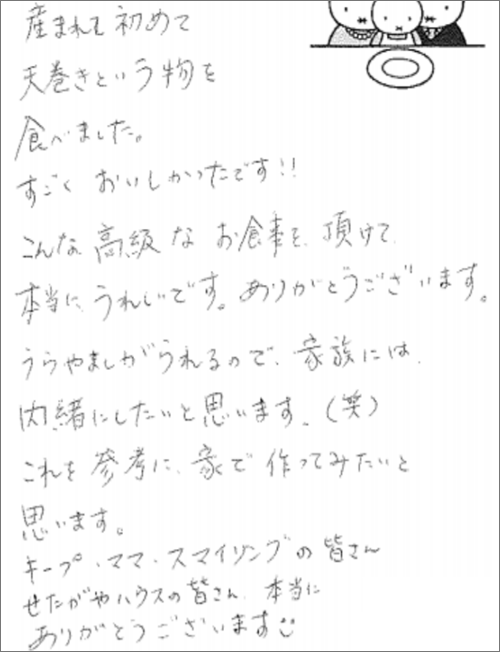 産まれて初めて
天巻きという物を
食べました。
すごく おいしかったです!!
こんな 高級な お食事を、頂けて、
本当に、うれしいです。ありがとうございます。
うらやましがられるので、家族には、
内緒にしたいと思います。(笑)
これを 参考に、家で 作ってみたいと
思います。
キープ・ママ・スマイリングの皆さん
せたがやハウスの皆さん、本当に
ありがとうございます